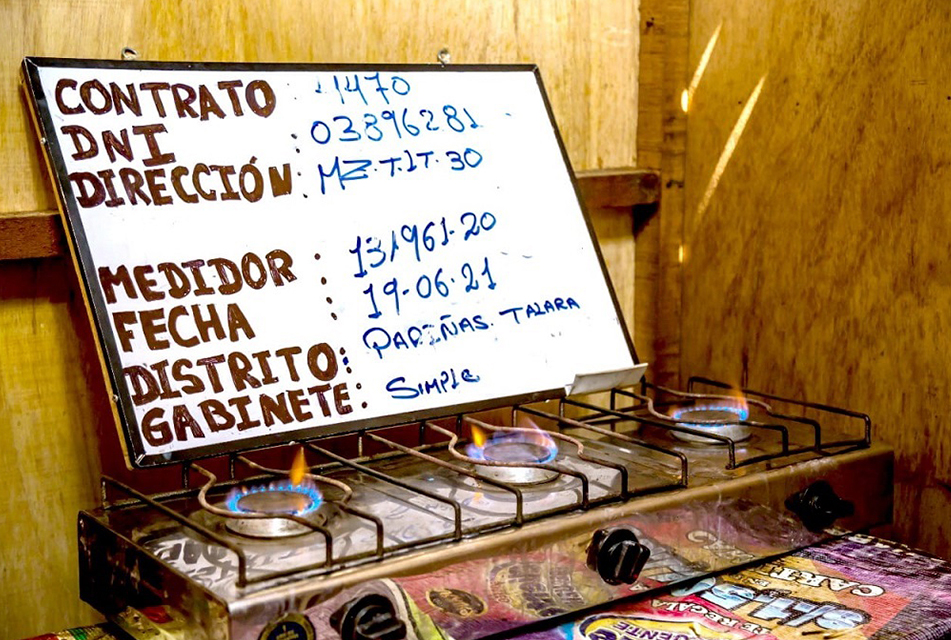 CONTRATO : 11470
DNI : 03896281
DIRECCIÓN : MZ.T.LT.30
MEDIDOR : 131961-20
FECHA : 19-06-21
DISTRITO: PARIÑAS. TALARA
GABINETE: SIMPLE
REGALA
CART